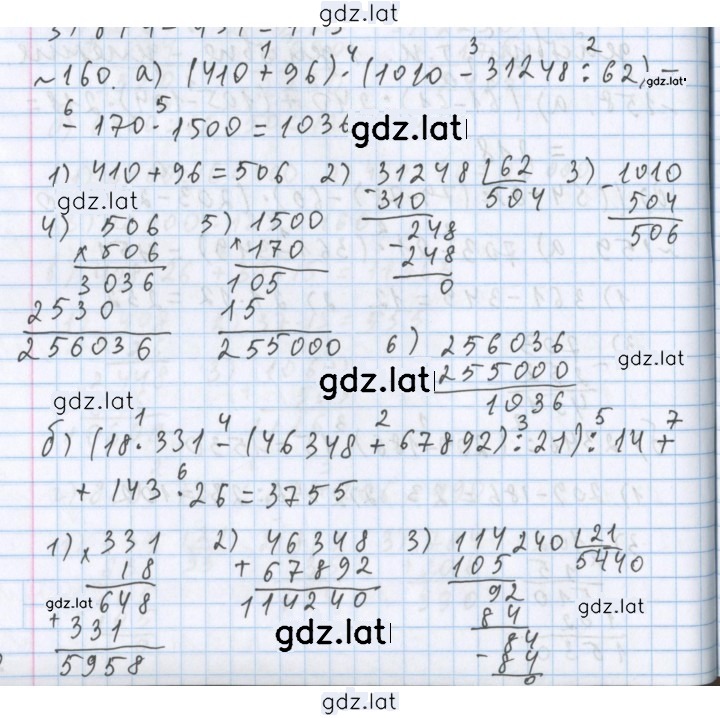 gdz.lat
№160. а) (410 + 96) · (1010 - 31248 : 62) -
1 4 3 2
gdz.lat
- 170 · 1500 = 1036
6 5
gdz.lat
1) 410 + 96 = 506 2) 31248 62 3) 1010
- 310 504 - 504
248 506
- 248
0
gdz.lat
4) 506 5) 1500
× 506 × 170
3036 105
2530 15
256036 255000
6) 256036
255000
1036
gdz.lat
gdz.lat
gdz.lat
б) (18 · 331 - (46348 + 67892) : 21) : 14 +
1 4 2 3 5 7
+ 143 · 26 = 3755
6
1) 331 2) 46348 3) 114240 21
× 18 + 67892 105 5440
648 114240 92
+ 331 84
5958 84
- 84
0
gdz.lat
gdz.lat
gdz.lat
gdz.lat